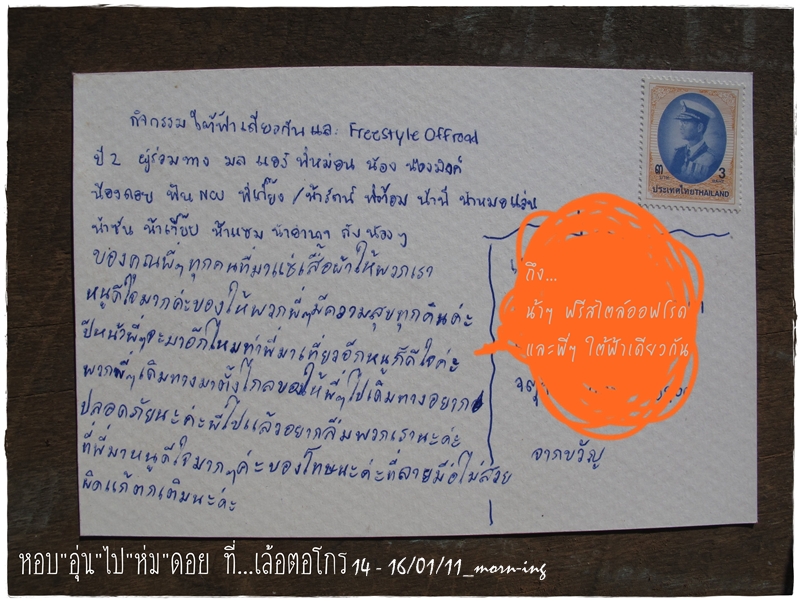 กิจกรรม ใต้ฟ้าเดียวกัน และ Freestyle Offroad
ปี 2 ผู้ร่วมทาง มล แอร์ พี่หม่อน น้อง
น้องดอย ฟิน พี่เกี๊ยง / น้ารัตน์ น้าหมอแว่น
น้าชัน น้าเกี๊ยบ น้าแซม ถึง น้องๆ
ของคุณพี่ๆทุกคนที่มาแช่เสื้อผ้าให้พวกเรา
หนูดีใจมากค่ะของให้พวกพี่ๆมีความสุขทุกคืนค่ะ
ปีหน้าพี่ๆจะมาอีกไหมท่าพี่มาเที่ยวอีกหนูก็ดีใจค่ะ
พวกพี่ๆเดิมทางมาตั้งไกลขอให้พี่ๆไปเดิมทางอยาก
ปลอดภัยนะค่ะพี่ไปแล้วอยากลืมพวกเรานะค่ะ
ที่พี่มาหนูดีใจมากๆค่ะของโทษนะค่ะที่ลายมือไม่สวย
ผิดแก้ตกเติมนะค่ะ
๓ บาท 3
ประเทศไทย THAILAND
ถึง...
น้าๆ ฟรีสไตล์ออฟโรด
และพี่ๆ ใต้ฟ้าเดียวกัน
จากขวัญ
หอบ"อุ่น"ไป"ห่ม"ดอย ที่...เล้อตอโกร 14 - 16/01/11_morn-ing